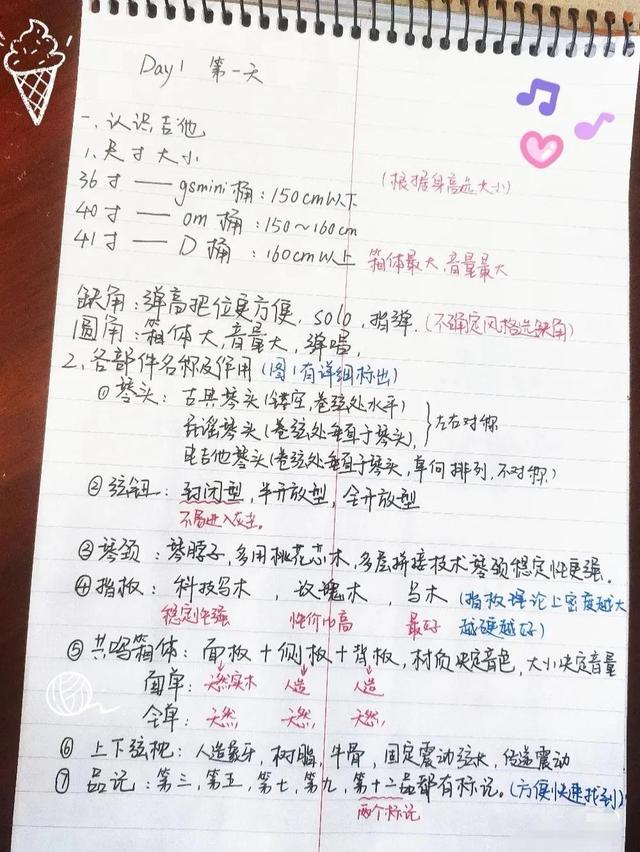 Day1 第一天
一.认识吉他
1.尺寸大小
36寸 — gsmini桶:150cm以下 (根据身高选大小)
40寸 — om 桶:150~160cm
41寸 — D 桶:160cm以上 箱体最大,音量最大
缺角:弹高把位更方便,solo,指弹.(不确定风格选缺角)
圆角:箱体大,音量大,弹唱,
2.各部件名称及作用(图1有详细标出)
①琴头:古典琴头(镂空,卷弦处水平)
民谣琴头(卷弦处垂直于琴头), 左右对称
电吉他琴头(卷弦处垂直于琴头,单向排列,不对称)
②弦钮:封闭型,半开放型,全开放型
不易进入灰尘。
③琴颈:琴脖子,多用桃花芯木,多层拼接技术琴颈稳定性更强.
④指板:科技乌木,玫瑰木,乌木(指板理论上密度越大
稳定性强 性价比高 最好 越硬越好)
⑤共鸣箱体:面板+侧板+背板,材质决定音色,大小决定音量
面单:天然实木 人造 人造
全单:天然, 天然, 天然,
⑥上下弦枕:人造象牙,树脂,牛骨,固定震动弦长,传递震动
⑦品记:第三,第五,第七,第九,第十二品都有标记。(方便快速找到)
两个标记